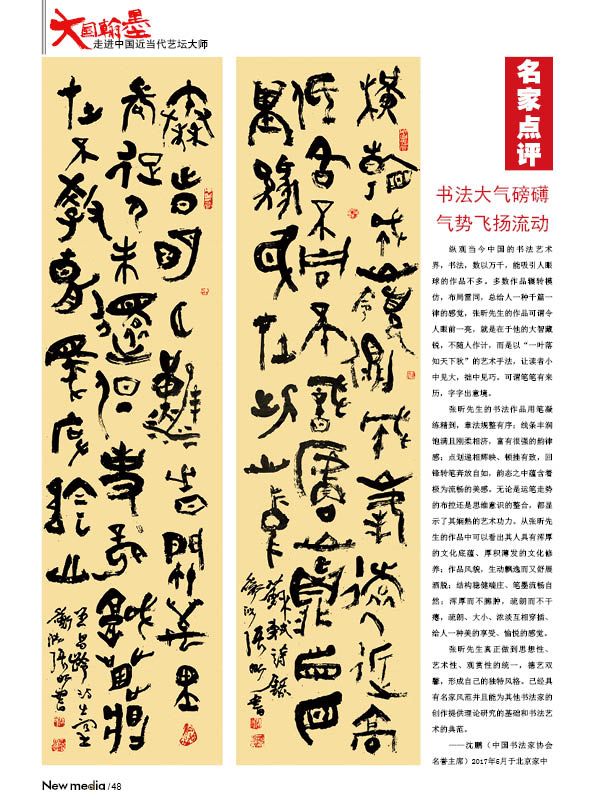 大国翰墨
走进中国近当代艺坛大师
橫看成嶺側成峯遠近高
低各不同不識廬山真面目
緣身在此山中
蘇軾詩錄
張昕書
秦時明月漢時關萬里
長征人未還但使龍城飛將
在不教胡馬度陰山
王昌齡詩出塞
張昕書
名家点评
书法大气磅礴
气势飞扬流动
纵观当今中国的书法艺术
界，书法，数以万千，能吸引人眼
球的作品不多。多数作品辗转模
仿，布局雷同，总给人一种千篇一
律的感觉，张昕先生的作品可谓令
人眼前一亮，就是在于他的大智藏
锐，不随人作计，而是以“一叶落
知天下秋”的艺术手法，让读者小
中见大，拙中见巧。可谓笔笔有来
历，字字出意境。
张昕先生的书法作品用笔凝
练精到，章法规整有序；线条丰润
饱满且刚柔相济，富有很强的韵律
感；点划遒相辉映、顿挫有致，回
锋转笔奔放自如，韵态之中蕴含着
极为流畅的美感。无论是运笔走势
的布控还是思维意识的整合，都显
示了其娴熟的艺术功力。从张昕先
生的作品中可以看出其人具有浑厚
的文化底蕴、厚积薄发的文化修
养；作品风貌，生动飘逸而又舒展
洒脱；结构稳健端庄、笔墨流畅自
然；浑厚而不臃肿，疏朗而不干
瘪，疏朗、大小、浓淡互相穿插、
给人一种美的享受、愉悦的感觉。
张昕先生真正做到思想性、
艺术性、观赏性的统一，德艺双
馨，形成自己的独特风格。已经具
有名家风范并且能为其他书法家的
创作提供理论研究的基础和书法艺
术的典范。
——沈鹏（中国书法家协会
名誉主席）2017年5月于北京家中
New media / 48